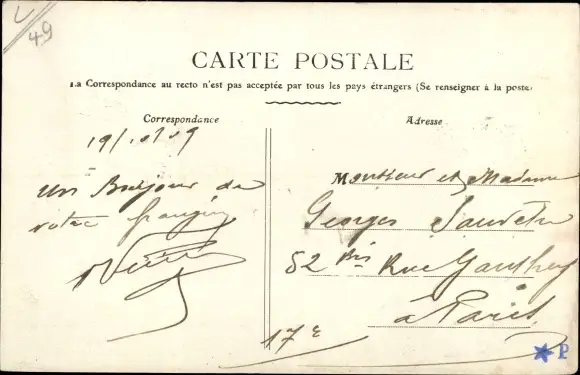 L
49
CARTE POSTALE
La Correspondance au recto n'est pas acceptée par tous les pays étrangers (Se renseigner à la poste)
Correspondance
Adresse
19/10/09
Un Bonjour de
votre
Monsieur et Madame
Georges
52 bis Rue Gauthey
à Paris
17e
P